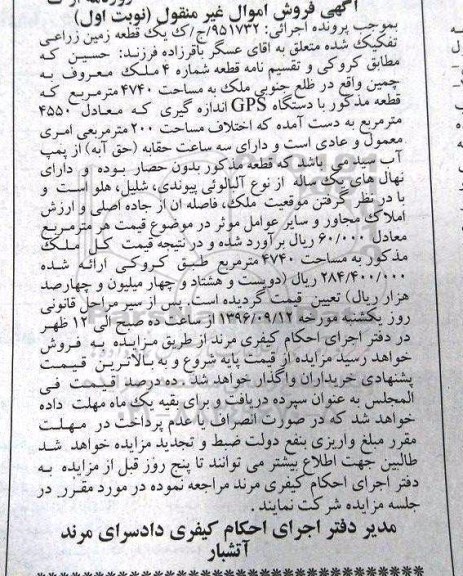 آگهی فروش اموال غیر منقول (نوبت اول)
بموجب پرونده اجرائی: ۹۵۱۷۳۲/ج/ک یک قطعه زمین زراعی
تفکیک شده متعلق به اقای عسگر باقرزاده فرزند: حسین که
مطابق کروکی و تقسیم نامه قطعه شماره ۴ ملک معروف به
چمین واقع در ظلع جنوبی ملک به مساحت ۴۷۴۰ مترمربع که
قطعه مذکور با دستگاه GPS اندازه گیری که معادل ۴۵۵۰
مترمربع به دست آمده که اختلاف مساحت ۲۰۰ مترمربعی امری
معمول و عادی است و دارای سه ساعت حقابه (حق آبه) از پمپ
آب سید می باشد که قطعه مذکور بدون حصار بوده و دارای
نهال های یک ساله از نوع آلبالوئی پیوندی، شلیل، هلو است و
با در نظر گرفتن موقعیت ملک، فاصله ان از جاده اصلی و ارزش
املاک مجاور و سایر عوامل موثر در موضوع قیمت هر مترمربع
معادل ۶۰/۰۰۰ ریال برآورد شده و در نتیجه قیمت کل ملک
مذکور به مساحت ۴۷۴۰ مترمربع طبق کروکی ارائه شده
۲۸۴/۴۰۰/۰۰۰ ریال (دویست و هشتاد و چهار میلیون و چهارصد
هزار ریال) تعیین قیمت گردیده است. پس از سیر مراحل قانونی
روز یکشنبه مورخه ۱۳۹۶/۰۹/۱۲ از ساعت ده صبح الی ۱۲ ظهر
در دفتر اجرای احکام کیفری مرند از طریق مزایده به فروش
خواهد رسید مزایده از قیمت پایه شروع و به بالاترین قیمت
پشنهادی خریداران واگذار خواهد شد. ده درصد قیمت فی
المجلس به عنوان سپرده دریافت و برای بقیه یک ماه مهلت داده
خواهد شد که در صورت انصراف یا عدم پرداخت در مهلت
مقرر مبلغ واریزی بنفع دولت ضبط و تجدید مزایده خواهد شد
طالبین جهت اطلاع بیشتر می توانند تا پنج روز قبل از مزایده به
دفتر اجرای احکام کیفری مرند مراجعه نموده در مورد مقرر در
جلسه مزایده شرکت نمایند.
مدیر دفتر اجرای احکام کیفری دادسرای مرند
آتشبار